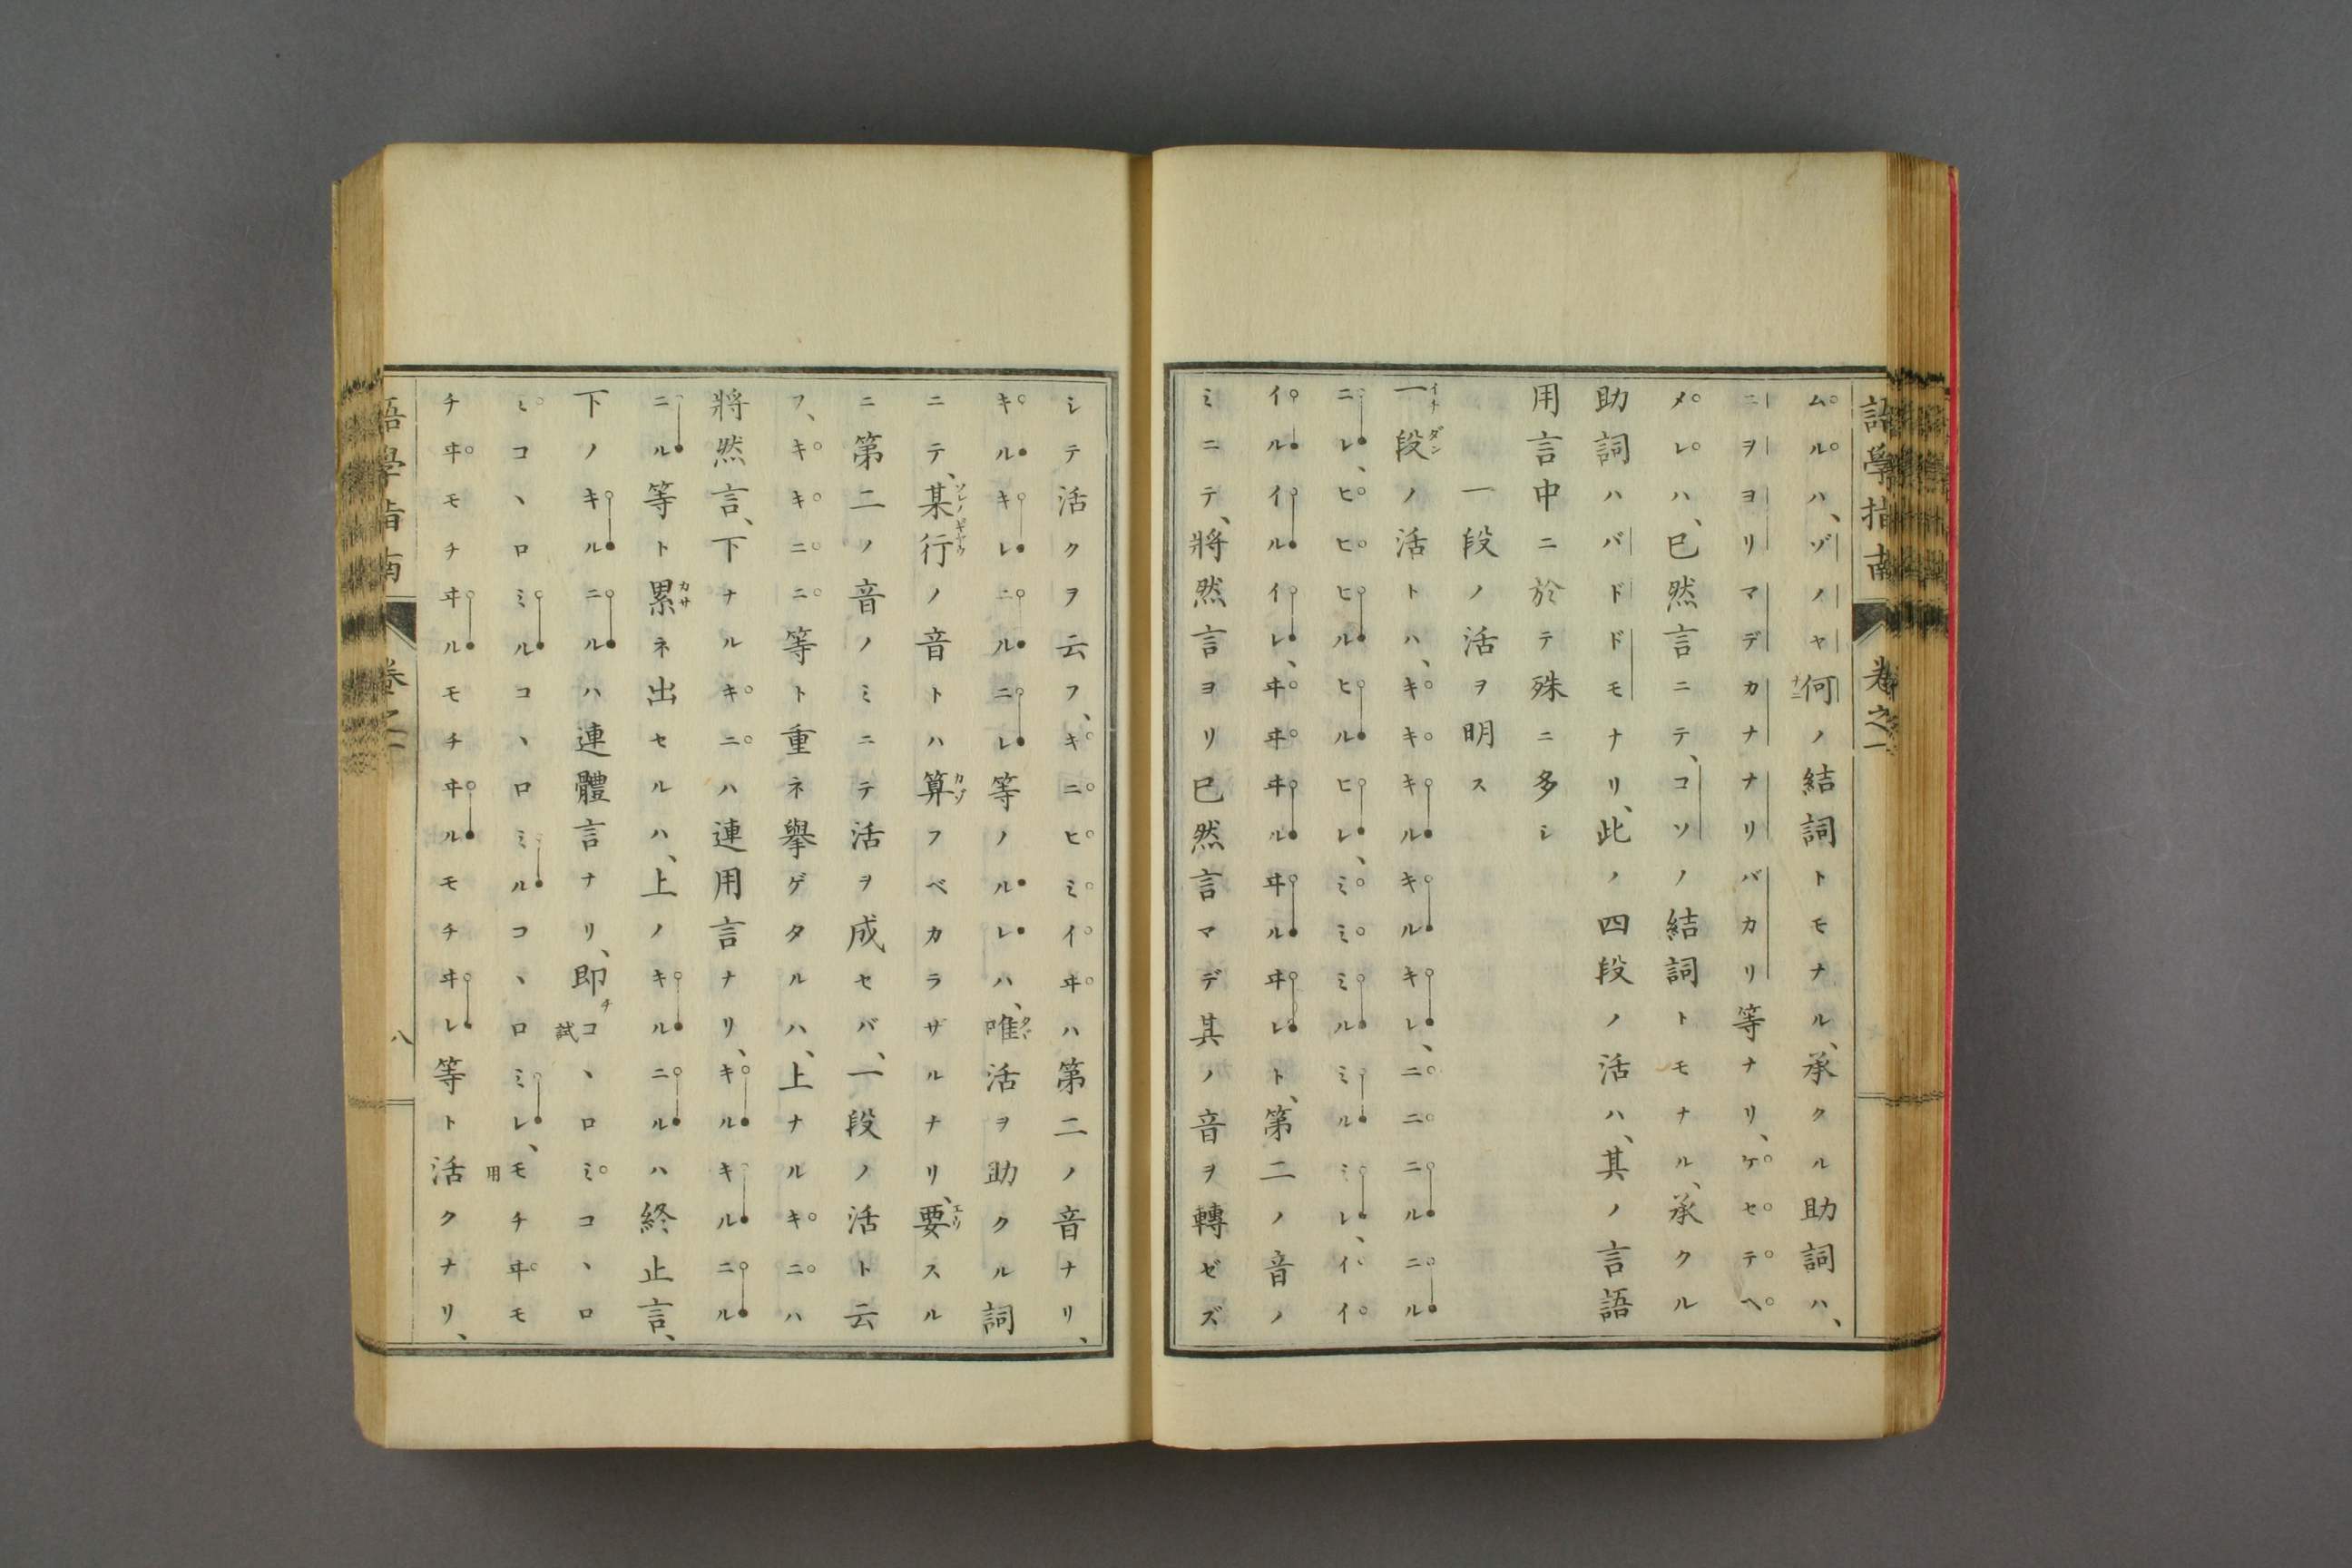 語學指南
卷之一
ムルハ、ゾノヤ何ノ結詞トモナル、承クル助詞ハ、
ニヲヨリマデカナナリバカリ等ナリ、ケセテヘ
メレハ、已然言ニテ、コソノ結詞トモナル、承クル
助詞ハバドドモナリ、此ノ四段ノ活ハ、其ノ言語
用言中ニ於テ殊ニ多シ
一段ノ活ヲ明ス
一段ノ活トハ、キキキルキルキレ、ニニニルニル
ニレ、ヒヒヒルヒルヒレ、ミミミルミルミレ、イイ
イルイルイレ、ヰヰヰルヰルヰレト、第二ノ音ノ
ミニテ、將然言ヨリ已然言マデ其ノ音ヲ轉ゼズ
シテ活クヲ云フ、キニヒミイヰハ第二ノ音ナリ、
キルキレニルニレ等ノルレハ、唯活ヲ助クル詞
ニテ、某行ノ音トハ算フベカラザルナリ、要スル
ニ第二ノ音ノミニテ活ヲ成セバ、一段ノ活ト云
フ、キキニニ等ト重ネ擧ゲタルハ、上ナルキニハ
將然言、下ナルキニハ連用言ナリ、キルキルニル
ニル等ト累ネ出セルハ、上ノキルニルハ終止言、
下ノキルニルハ連體言ナリ、即チ試コヽロミコヽロ
ミコヽロミルコヽロミルコヽロミレ、用モチヰモ
チヰモチヰルモチヰルモチヰレ等ト活クナリ、
語學指南
卷之一
八